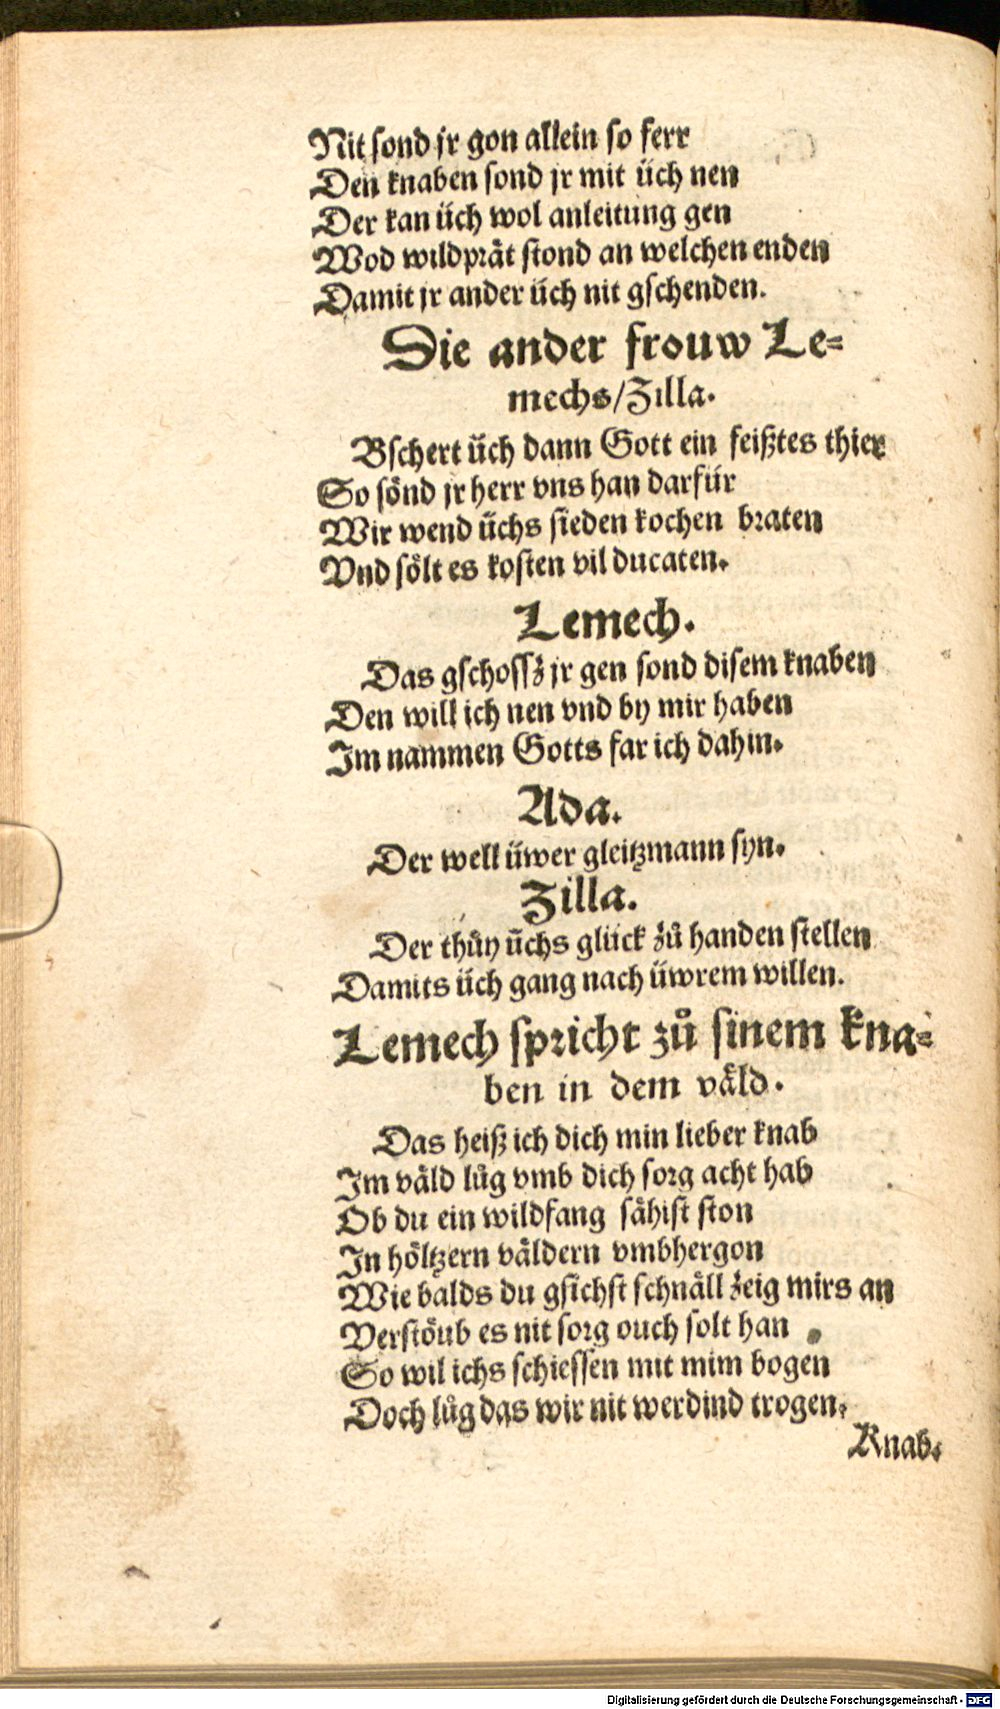 Nit sond jr gon allein so ferr
Den knaben sond jr mit üch nen
Der kan üch wol anleitung gen
Wod wildprät stond an welchen enden
Damit jr ander üch nit gschenden.
Die ander frouw Le=
mechs/Zilla.
Bschert üch dann Gott ein feißtes thier
So sönd jr herr vns han darfür
Wir wend üchs sieden kochen braten
Vnd sölt es kosten vil ducaten.
Lemech.
Das gschossz jr gen sond disem knaben
Den will ich nen vnd by mir haben
Im nammen Gotts far ich dahin.
Ada.
Der well üwer gleitzmann syn.
Zilla.
Der thüy üchs glück zů handen stellen
Damits üch gang nach üwrem willen.
Lemech spricht zů sinem kna=
ben in dem väld.
Das heiß ich dich min lieber knab
Im väld lůg vmb dich sorg acht hab
Ob du ein wildfang sähist ston
In höltzern väldern vmbhergon
Wie balds du gsichst schnäll zeig mirs an
Verstöub es nit sorg ouch solt han
So wil ichs schiessen mit mim bogen
Doch lůg das wir nit werdind trogen.
Knab.
Digitalisierung gefördert durch die Deutsche Forschungsgemeinschaft - DFG